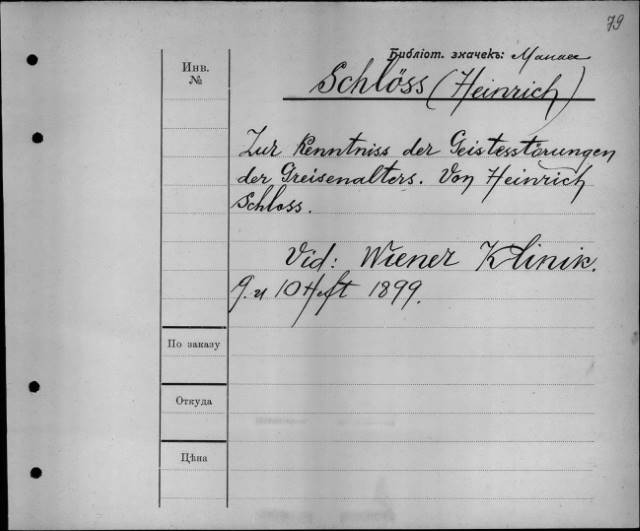 79
Библіот. значекъ:
Инв.
№
Schlöss (Heinrich)
Zur Kenntniss der Geistesstörungen
der Greisenalters. Von Heinrich
Schloss.
Vid: Wiener Klinik.
9. u 10 Heft 1899.
По заказу
Откуда
Цѣна